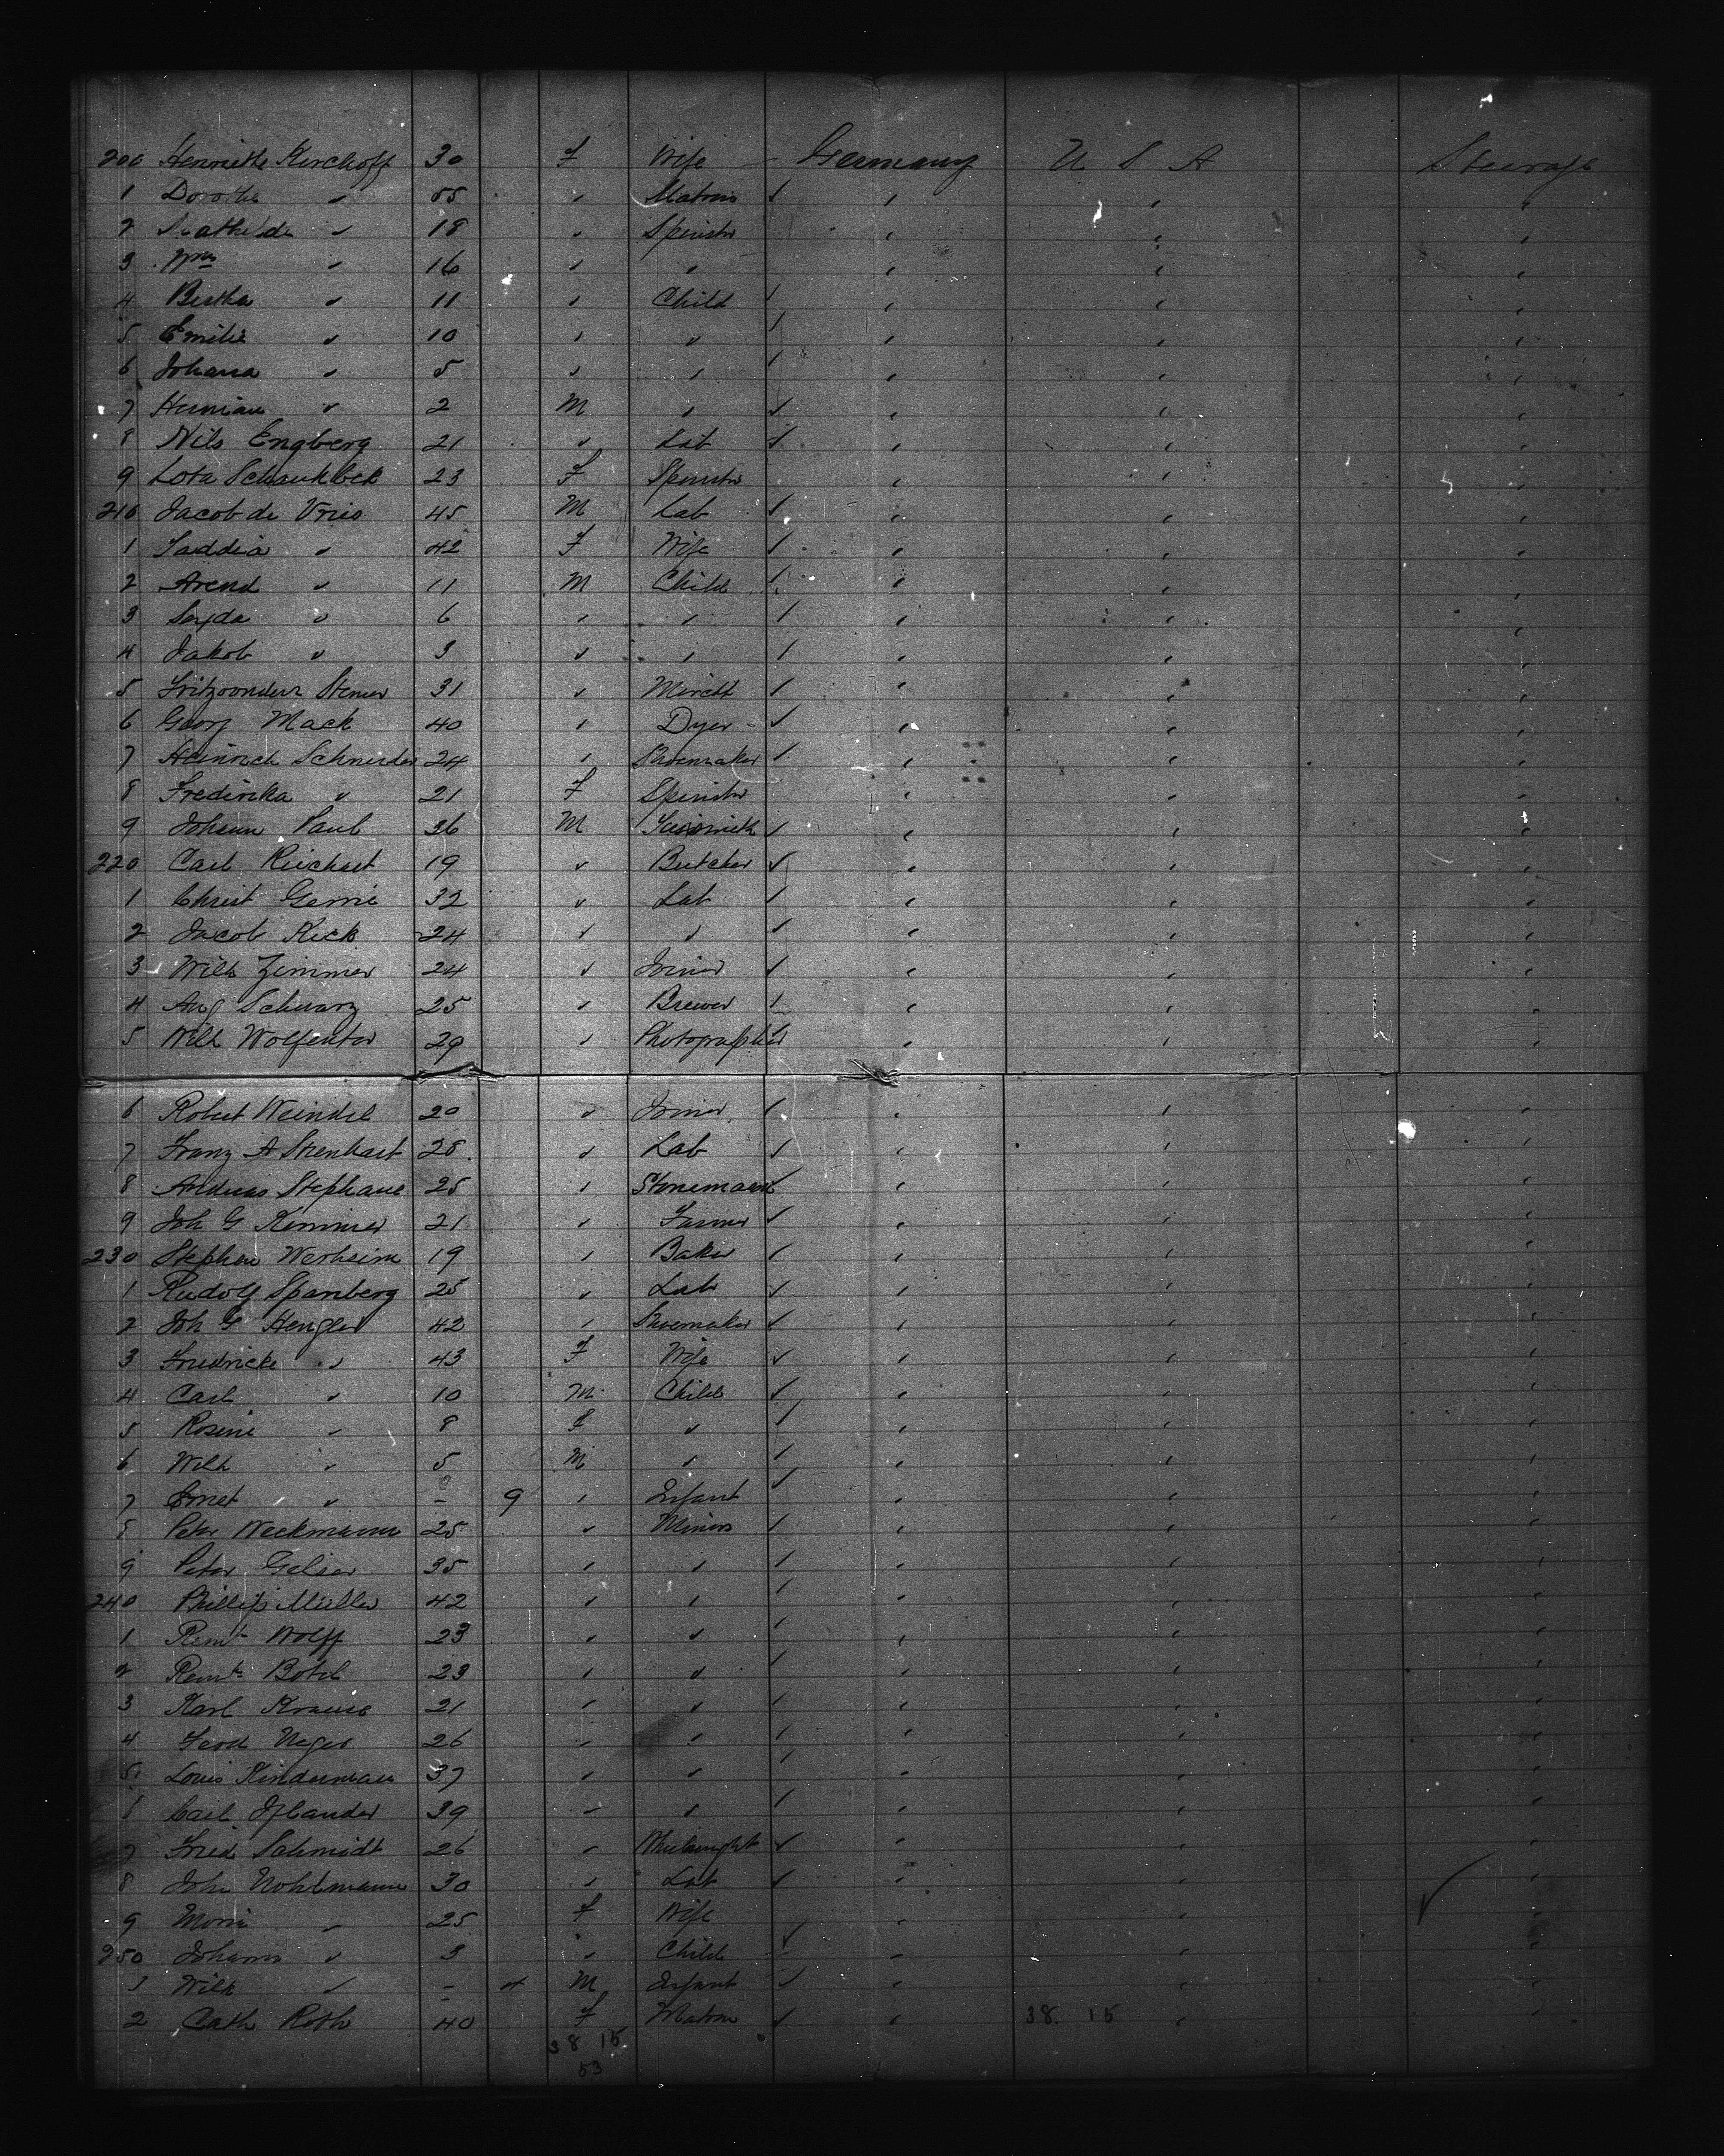 200 Henriette Kirchoff 30 f Wife Germany U S A Steerage
1 Dorothe " 55 " Matron " " "
2 Mathilde " 18 " Spinster " " "
3 Wm " 16 " " " " "
4 Bertha " 11 " Child " " "
5 Emilie " 10 " " " " "
6 Johana " 5 " " " " "
7 Herman " 2 M " " " "
8 Nils Engberg 21 " Lab " " "
9 Lota 23 f Spinster " " "
210 Jacob de Vries 45 M Lab " " "
1 " 42 f Wife " " "
2 Arend " 11 M Child " " "
3 " 6 " " " " "
4 Jakob " 3 " " " " "
5 31 " Mercht " " "
6 Georg Mack 40 " Dyer " " "
7 Heinrich Schneider 24 " Shoemaker " " "
8 Fredirika " 21 f Spinster " " "
9 Johann Paul 36 M " " "
220 Carl Reichert 19 " Butcher " " "
1 Christ 32 " Lab " " "
2 Jacob Kick 24 " " " " "
3 Wilh Zimmer 24 " Joiner " " "
4 Aug Schwarz 25 " Brewer " " "
5 Wilh 29 " Photographer " " "
6 Robert Weindel 20 " Joiner " " "
7 Franz A 28 " Lab " " "
8 Andreas Stephane 25 " Stonemason " " "
9 Joh G Kimmer 21 " Farmer " " "
230 Stephen Werheim 19 " Baker " " "
1 Rudolf Spanberg 25 " Lab " " "
2 Joh G Hengler 42 " Shoemaker " " "
3 Friedricke " 43 f Wife " " "
4 Carl " 10 M Child " " "
5 Rosine " 8 f " " " "
6 Wilh " 5 M " " " "
7 Ernet " - 9 " Infant " " "
8 Peter Weckmann 25 " Miner " " "
9 Peter Gelser 35 " " " " "
240 Phillip Müller 42 " " " " "
1 Wolff 23 " " " " "
2 23 " " " " "
3 Karl Krause 21 " " " " "
4 Ferd Neger 26 " " " " "
5 Louis Kinderman 37 " " " " "
6 Carl Iflander 39 " " " " "
7 Fried Schmidt 26 " Wheelwright " " "
8 John Nohlmann 30 " Lab " " "
9 " 25 f Wife " " "
250 Johann " 3 " Child " " "
1 Wilh " - 4 M Infant " " "
2 Cath Roth 40 f Matron " 38 15 " "
38 15
53